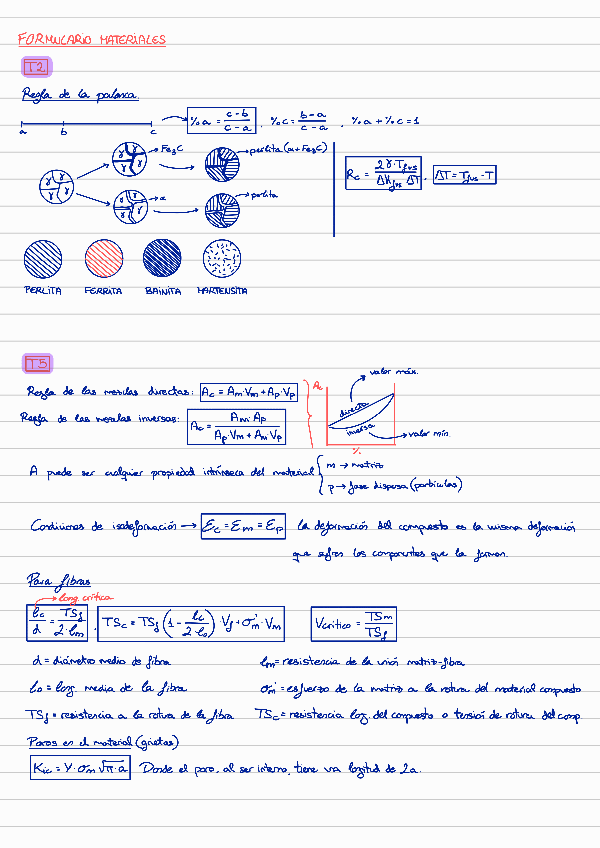 FORMULARIO MATERIALES
T2
Regla de la palanca.
a b c
%a = (c-b)/(c-a) , %c = (b-a)/(c-a) , %a + %c = 1
γ γ γ γ
γ γ γ γ → Fe3C
→ perlita (α + Fe3C)
γ γ γ γ → α
→ perlita
Rc = 2γ·Tfus/(ΔHfus·ΔT) , ΔT = Tfus - T
PERLITA FERRITA BAINITA MARTENSITA
T5
Regla de las mezclas directas: Ac = Am·Vm + Ap·Vp
Regla de las mezclas inversas: Ac = Am·Ap/(Ap·Vm + Am·Vp)
Ac
valor máx.
directa
inversa
valor mín.
%
A puede ser cualquier propiedad intrínseca del material
m → matriz
p → fase dispersa (partículas)
Condiciones de isodeformación → Ec = Em = Ep la deformación del compuesto es la misma deformación
que sufren los componentes que la forman.
Para fibras
→ long. crítica
lc/d = TSf/(2·lm) , TSc = TSf(1 - lc/(2·lo))·Vf + σ'm·Vm
Vcrítico = TSm/TSf
d = diámetro medio de fibra
lm = resistencia de la unión matriz-fibra
lo = long. media de la fibra
σ'm = esfuerzo de la matriz a la rotura del material compuesto
TSf = resistencia a la rotura de la fibra
TSc = resistencia long. del compuesto o tensión de rotura del comp.
Poros en el material (grietas)
Kic = Y·σm√(π·a) Donde el poro, al ser interno, tiene una longitud de 2a.